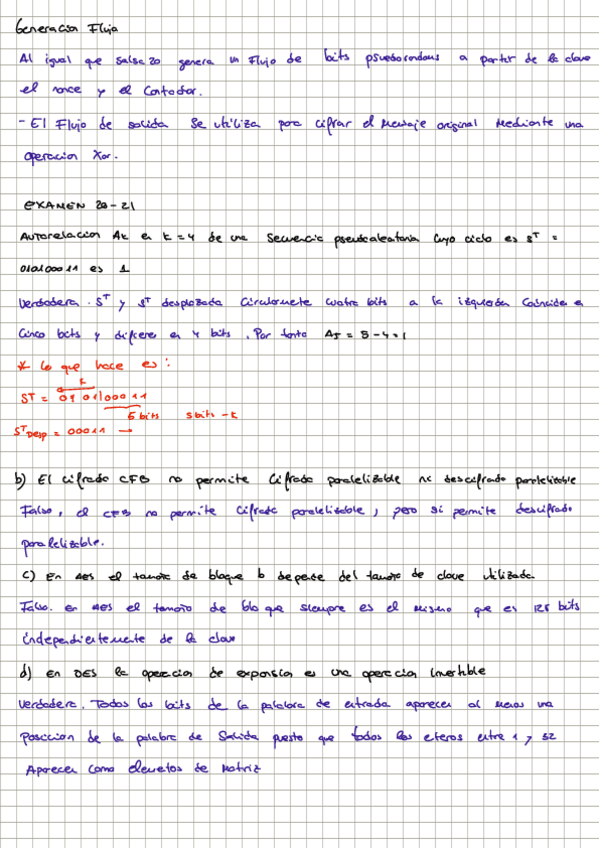 Generacion Flujo
Al igual que salsa20 genera un Flujo de bits psuedorandoms a partir de la clave
el nonce y el Contador.
- El Flujo de salida se utiliza para cifrar el Mensaje original Mediante una
operacion Xor.
EXAMEN 20-21
Autorelacion Ak en k=4 de una Secuencia pseudoaleatoria Cuyo ciclo es S^T =
010100011 es 1
Verdadera. S^T y S^T desplazada Circularmente Cuatro bits a la izquierda Coincide en
Cinco bits y difieren en 4 bits. Por tanto AT = 5-4=1
* Lo que hace es:
k
S^T = 010100011
5 bits 5bits - k
S^T Desp = 00011 →
b) El cifrado CFB no permite Cifrado paralelizable ni descifrado paralelizable
Falso, el CFB no permite Cifrado paralelizable, pero si permite descifrado
paralelizable.
c) En AES el tamaño de bloque b depende del tamaño de clave utilizada
Falso. en AES el tamaño de bloque siempre es el mismo que es 128 bits
independientemente de la clave
d) en DES la operacion de expansion es una operacion invertible
Verdadera. Todos los bits de la palabra de entrada aparecen al menos una
Posicion de la palabra de Salida puesto que todos los enteros entre 1 y 32
Aparecen Como elementos de Matriz